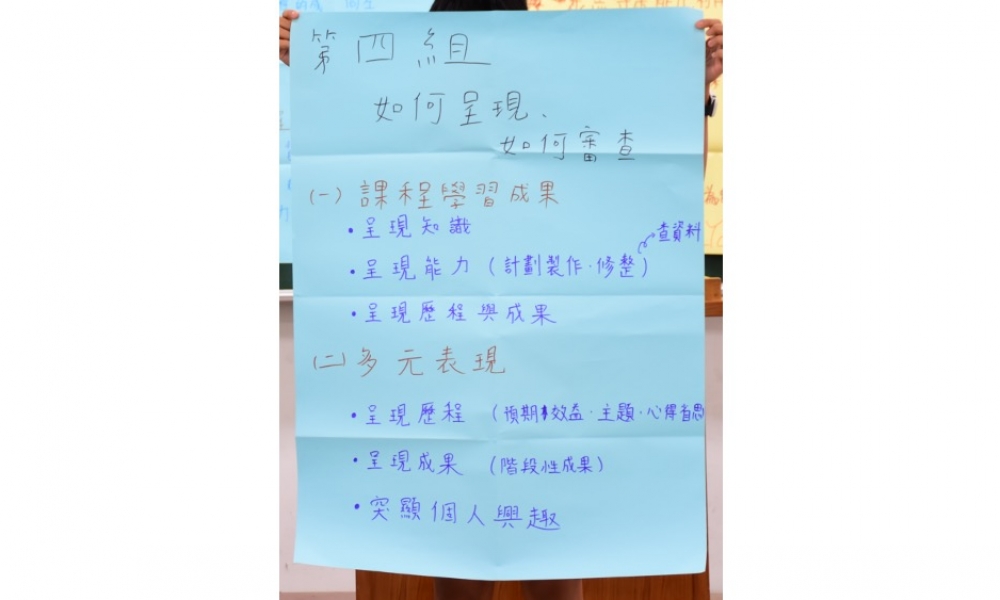 第四組
如何呈現、
如何審查
(一) 課程學習成果
• 呈現知識
查資料
• 呈現能力 (計劃製作·修整)
• 呈現歷程與成果
(二) 多元表現
• 呈現歷程 (預期效益·主題·心得省思
• 呈現成果 (階段性成果)
• 突顯個人興趣